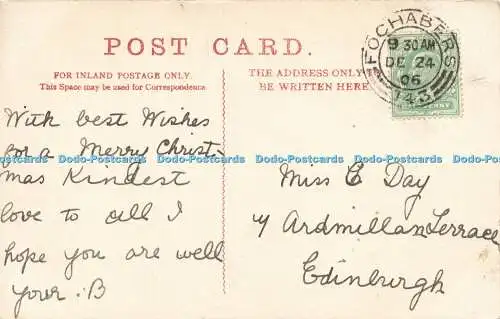 POST CARD.
FOR INLAND POSTAGE ONLY.
This Space may be used for Correspondence.
THE ADDRESS ONLY
BE WRITTEN HERE
FOCHABERS
9 30 AM
DE 24
06
143
With best Wishes
for a Merry Christ-
mas Kindest
love to all I
hope you are well
your B
Miss E Day
Ardmillan Terrace
Edinburgh
Dodo-Postcards Dodo-Postcards Dodo-Postcards Dodo-Postcards Dodo-Postcards